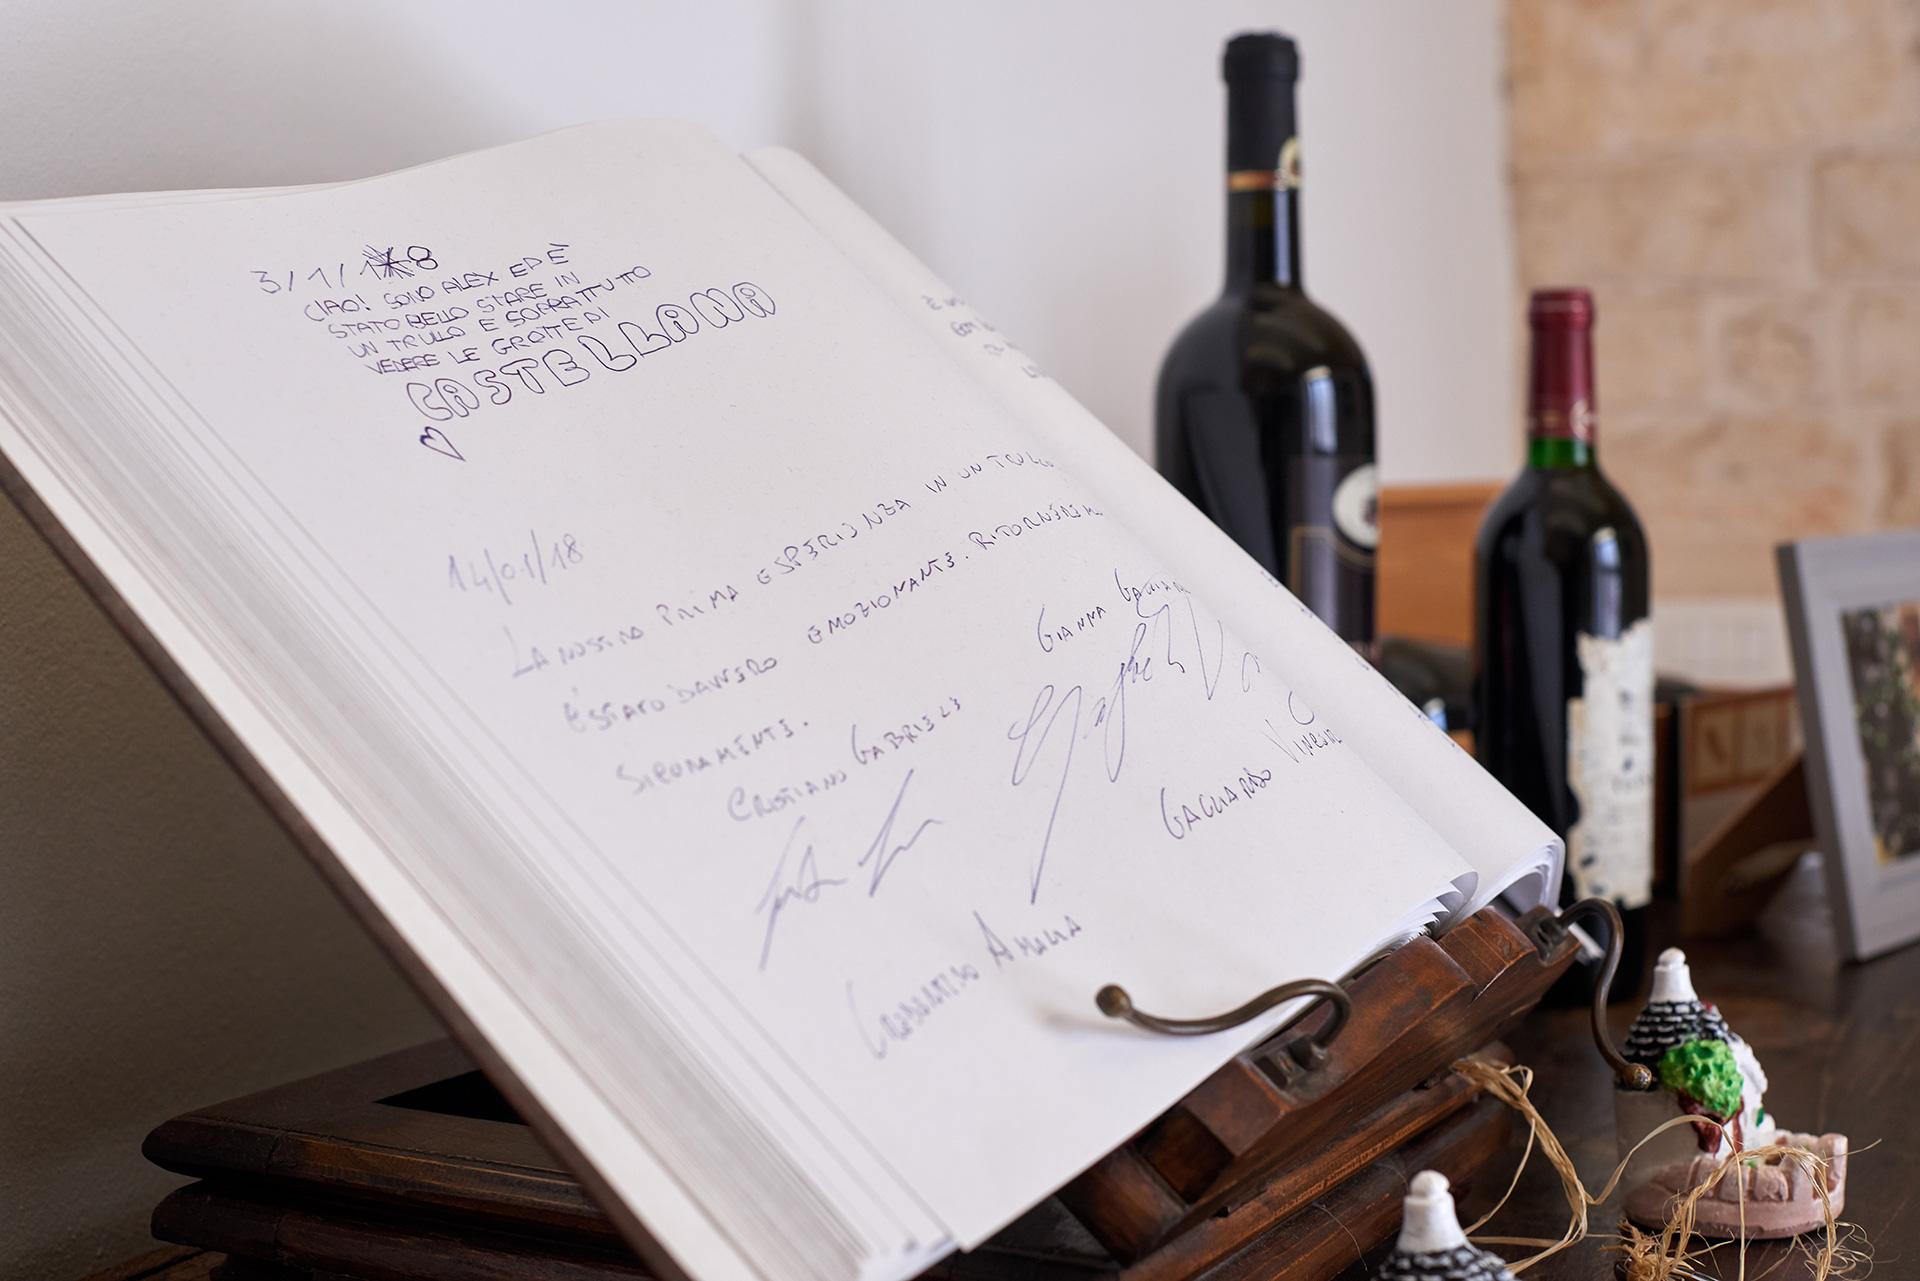 3/1/18
CIAO! SONO ALEX ED È
STATO BELLO STARE IN
UN TRULLO E SOPRATTUTTO
VEDERE LE GROTTE DI
CASTELLANA
14/01/18
LA NOSTRA PRIMA ESPERIENZA IN UN TRULLO
È STATO DAVVERO EMOZIONANTE. RITORNEREMO
SICURAMENTE.
CRISTIANO GABRIELE
GIANNA
GAGLIARDO
AMALIA